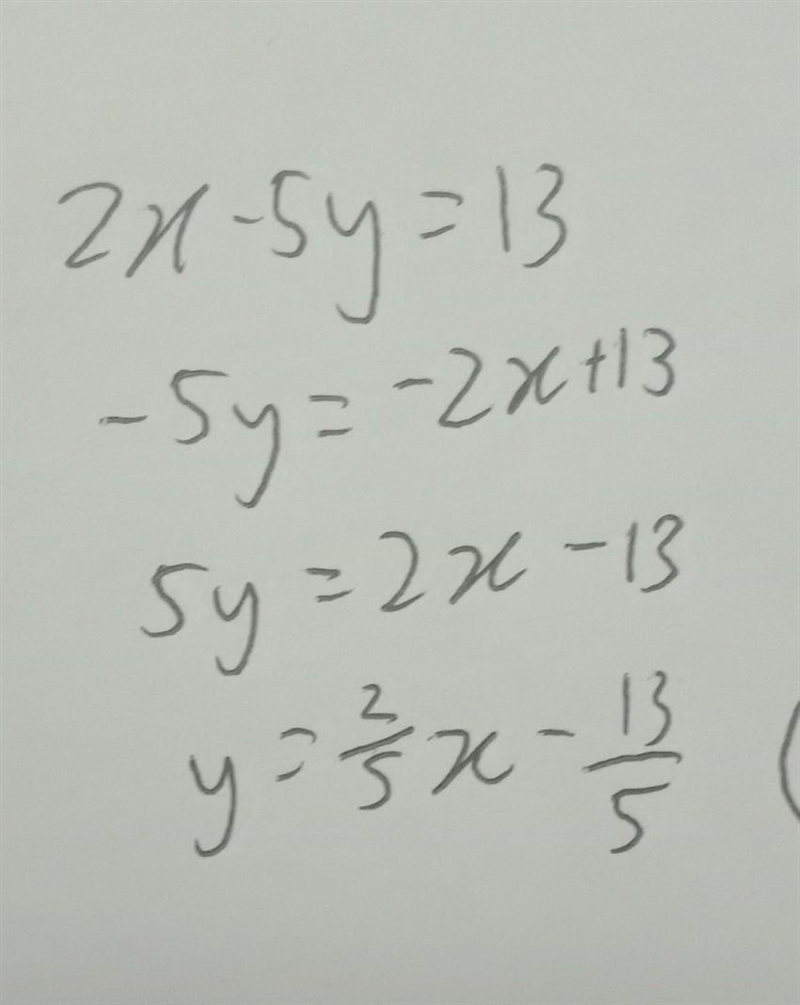 2x - 5y = 13
-5y = -2x + 13
5y = 2x - 13
y = 2/5 x - 13/5 (